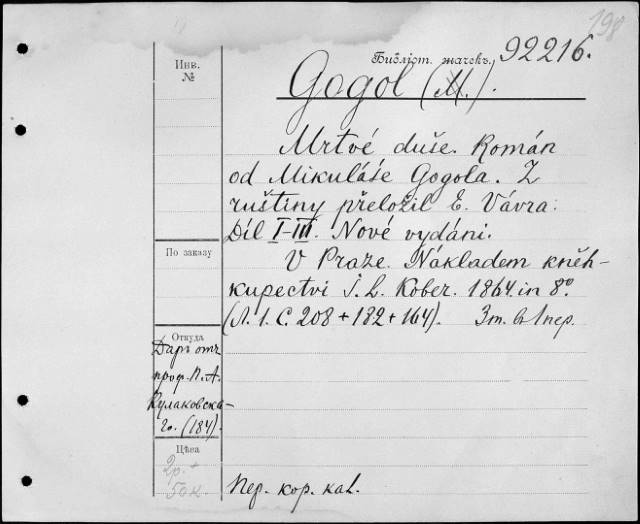 198
Библіот. значекъ. 92216.
Инв.
№
Gogol (M.).
Mrtvé duše. Román
od Mikuláše Gogola. Z
ruštiny přeložil E. Vávra.
Díl I-III. Nové vydáni.
V Praze. Nákladem kněh-
kupectvi I. L. Kober. 1864. in 8º.
(Л. 1. С. 208 + 182 + 164). 3 т. въ 1 пер.
По заказу
Откуда
Даръ отъ
проф. П. А.
Кулаковска-
го. (184).
Цѣна
2р. +
50к.
Пер. кор. кал.